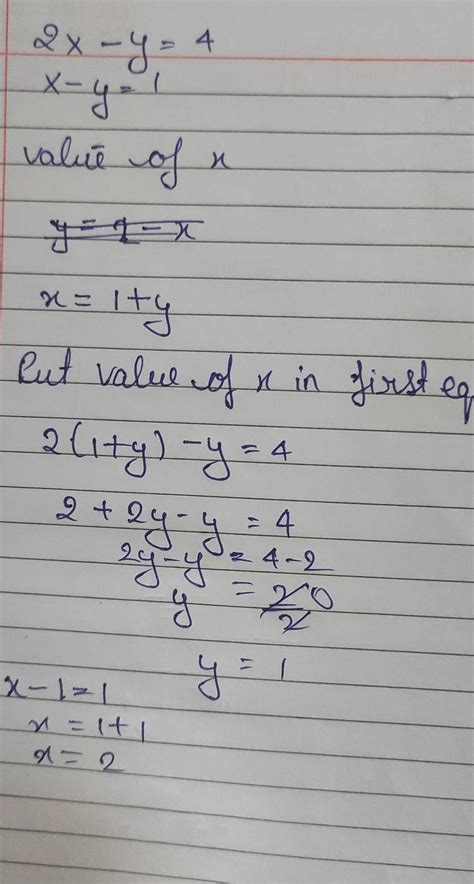 2x - y = 4
x - y = 1
value of x
y = 1 - x
x = 1 + y
Put value of x in first eq
2(1+y) - y = 4
2 + 2y - y = 4
2y - y = 4 - 2
y = 2/2
y = 1
x - 1 = 1
x = 1 + 1
x = 2